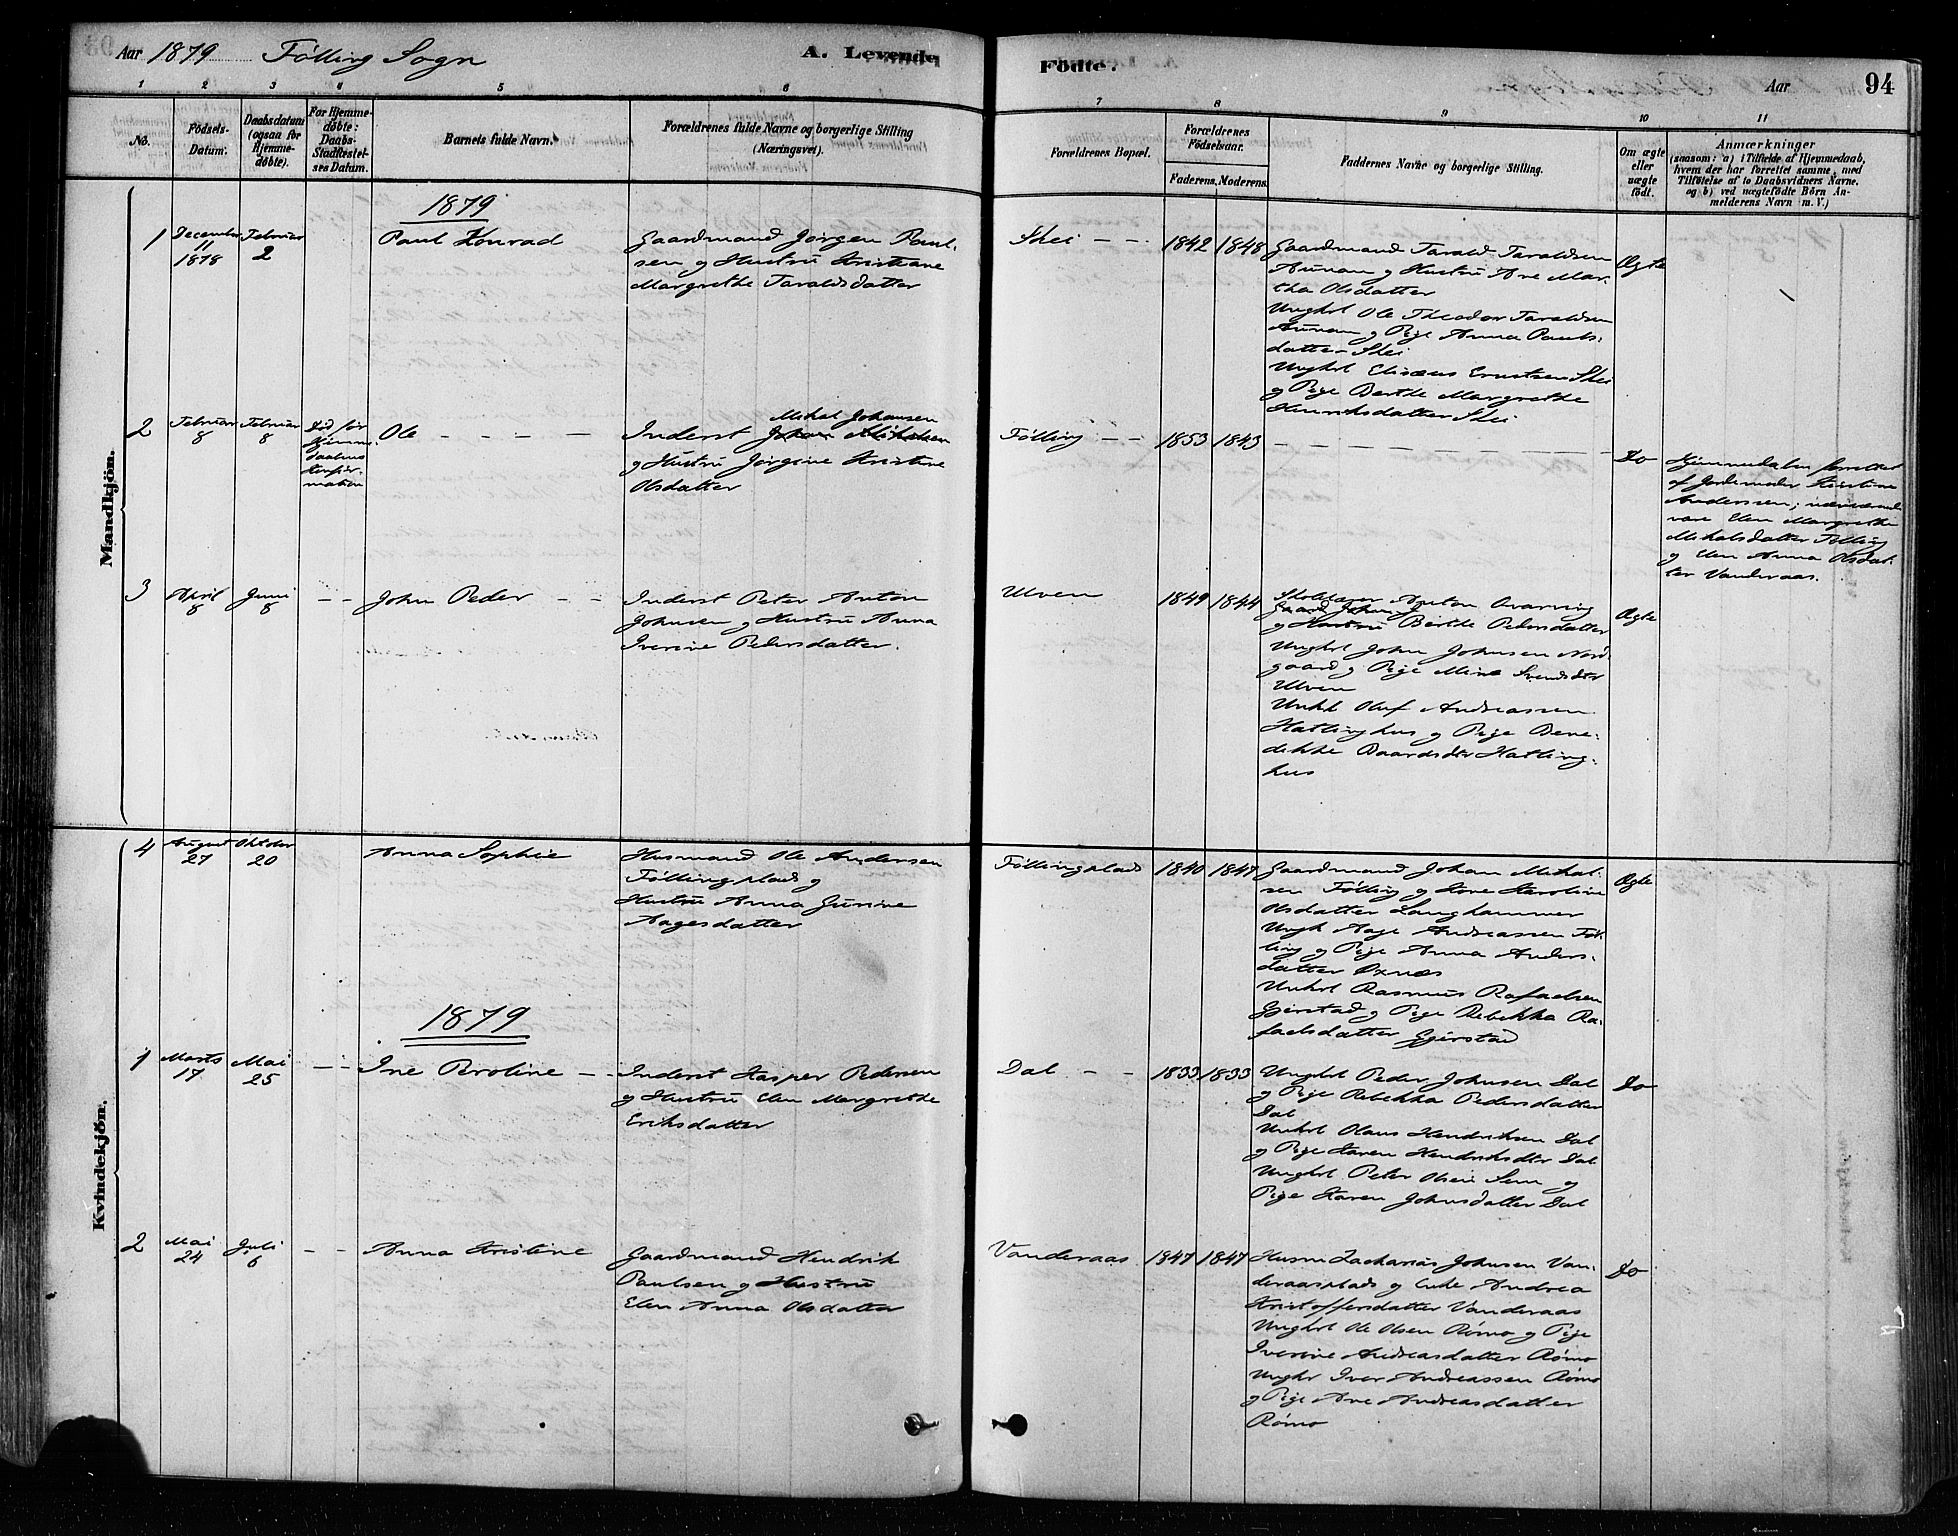 Aar 1879 Følling Sogn A. Levende Fødte. Aar 94
1 2 3 4 5 6 7 8 9 10 11
No.
Fødsels-Datum.
Daabsdatum (ogsaa for Hjemmedøbte).
For Hjemmedøbte: Daabs-Stadfæstelses Datum.
Barnets fulde Navn.
Forældrenes fulde Navne og borgerlige Stilling
(Næringsvei).
Forældrenes Bopæl.
Forældrenes Fødselsaar.
Faderens. Moderens.
Faddernes Navne og borgerlige Stilling.
Om ægte eller uægte født.
Anmærkninger
(saasom: a) i Tilfælde af Hjemmedaab,
hvem der har forrettet samme, med
Tilføielse af to Daabsvidners Navne,
og b) ved uægtefødte Börn An-
melderens Navn m. V.)
Mandkjön.
1879
1 December 11 1878 Februar 2 Paul Konrad
Gaardmand Jørgen Paul-
sen og Hustru Kristiane
Margrethe Taraldsdatter
Skei - - 1842 1848
Gaardmand Tarald Taraldsen
Aunan og Hustru Ane Mar-
tha Olsdatter
Unghrl Ole Theodor Taraldsen
Aunan og Pige Anna Pauls-
datter Skei
Unghrl Elisæus Ernstsen Skei
og Pige Berthe Margrethe
Henriksdatter Skei
Ægte
2 Februar 8 Februar 8
Død før
Hjemme-
daabens
Konfir-
mation
Ole - - - -
Mikal Johansen
Inderst Johan Mikalsen
og Hustru Jørgine Kristine
Olsdatter
Følling - - 1853 1843 - - - - - - - Do
Hjemmedaben forrettet
af Jordemoder Kristine
Anderssen; nærværende
vare Elen Margrethe
Mikalsdatter Følling
og Elen Anna Olsdat-
ter Vanderaas.
3 April 8 Juni 8 - - John Peder - -
Inderst Peter Anton
Johnsen og Hustru Anna
Iverine Pedersdatter.
Ulven 1849 1844
Skolelærer Anton Qvarving
Gaard Johan J
og Hustru Berthe Pedersdatter
Unghrl John Johnsen Nord-
gaard og Pige Mine Svendsdtr
Ulven
Unhl Oluf Andreassen
Hatlinghus og Pige Bene-
dikke Baardsdtr Hatling-
hus
Ægte
4 August 27 Oktober 20 Anna Sophie
Husmand Ole Andersen
Føllingplads og
Hustru Anna Gurine
Aagesdatter
Føllingplads 1840 1847
Gaardmand Johan Mikal-
sen Følling og Kone Karoline
Olsdatter Langhammer
Ungh Aage Andreassen Føl-
ling og Pige Anna Anders-
datter Oxnæs
Unhrl Rasmus Rafaelsen
Gjerstad og Pige Rebekka Ra-
faelsdatter Gjerstad
Ægte
Kvindekjön.
1879
1 Marts 17 Mai 25 - - Ine Peroline -
Inderst Kasper Pedersen
og Hustru Elen Margrethe
Eriksdatter
Dal - - 1833 1833
Unghrl Peder Johnsen Dal
og Pige Rebekka Pedersdatter
Dal
Unhrl Olaus Hendriksen Dal
og Pige Karen Hendriksdtr Dal
Unghrl Peter Olsen Sem og
Pige Karen Johnsdatter Dal
Do
2 Mai 24 Juli 6 - - Anna Kristine
Gaardmand Hendrik
Paulsen og Hustru
Elen Anna Olsdatter
Vanderaas 1847 1847
Husm Zacharias Johnsen Van-
deraasplads og Enke Andrea
Kristoffersdatter Vanderaas
Unghrl Ole Olsen Rømo og Pige
Iverine Andreasdatter Rømo
Unghr Iver Andreassen Rømo
og Pige Ane Andreasdatter
Rømo
Do